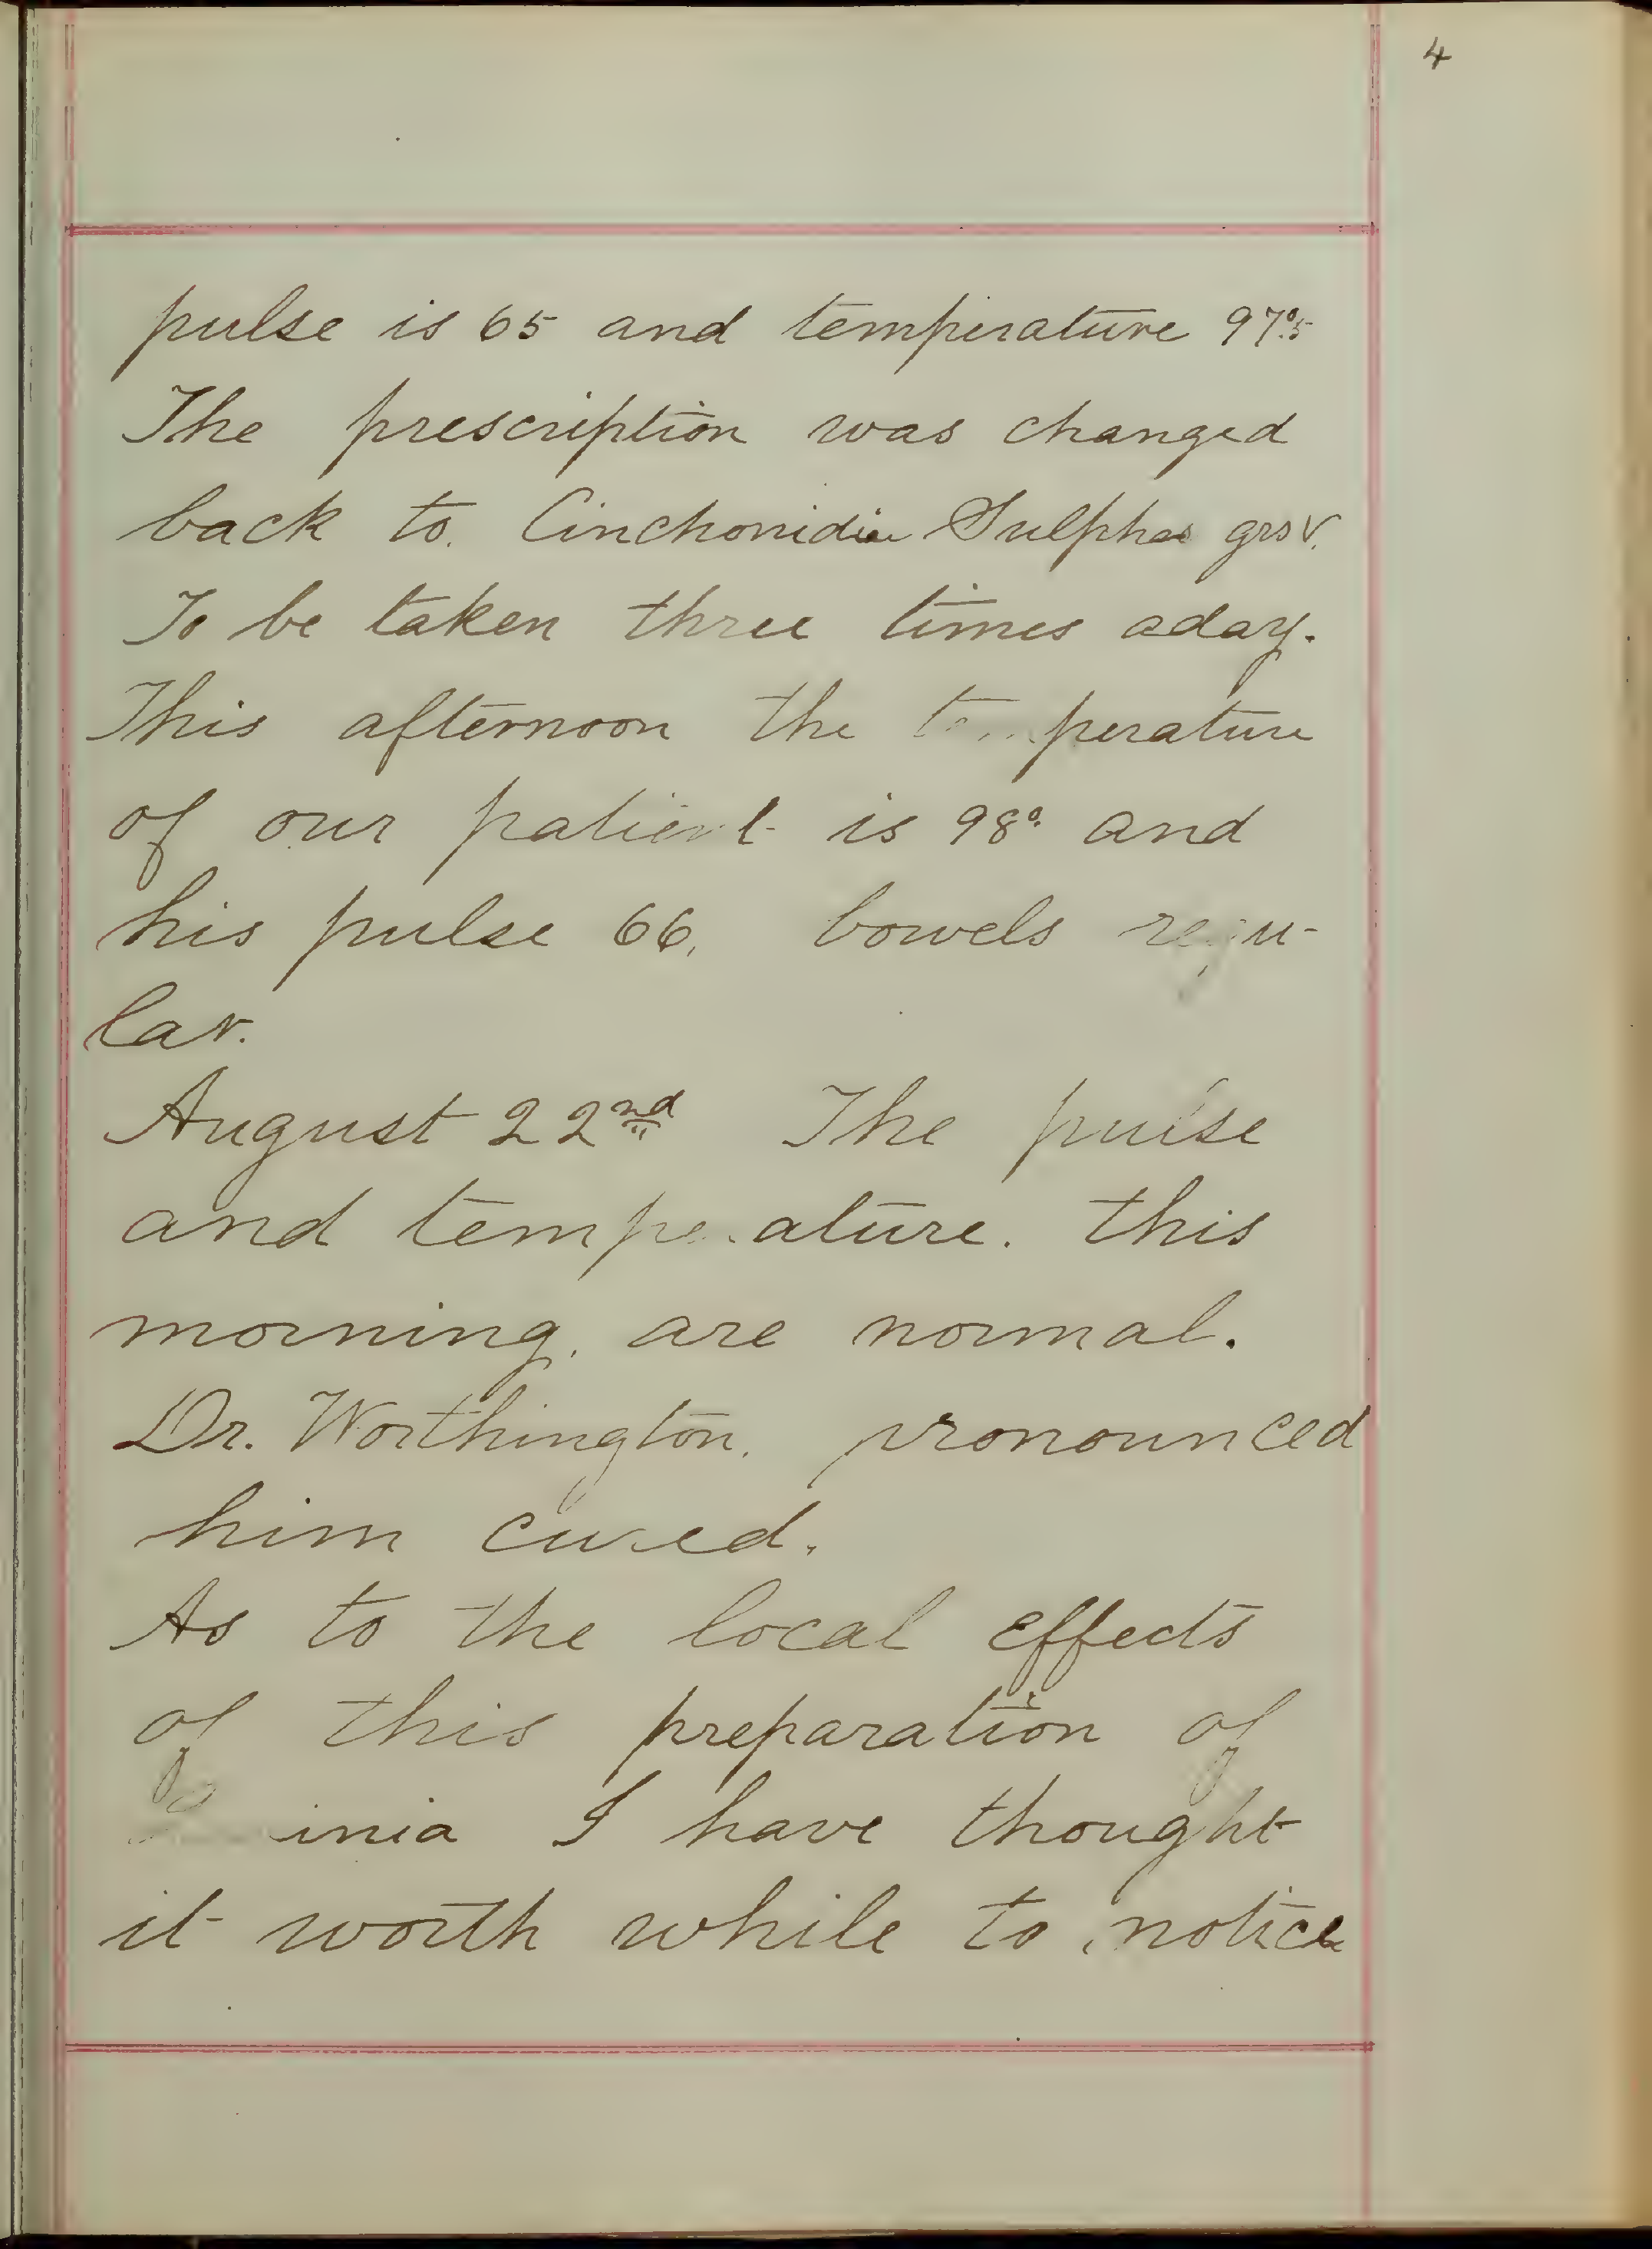 4
pulse is 65 and temperature 97°.5
The prescription was changed
back to. Cinchonidiae Sulphas grs v.
To be taken three times aday.
This afternoon the temperature
of our patient is 98°. and
his pulse 66, bowels regu-
lar.
August 22nd The pulse
and temperature. this
morning, are normal.
Dr. Worthington, pronounced
him cured.
As to the local effects
of this preparation of
I have thought
it worth while to notice